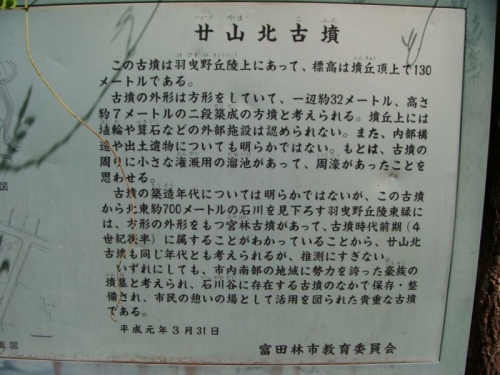 つづ やま こ ふん
廿山北古墳
はびきのきゅうりょう
ふんきゅう
この古墳は羽曳野丘陵上にあって、標高は墳丘頂上で130
メートルである。
古墳の外形は方形をしていて、一辺約32メートル、高さ
約7メートルの二段築成の方墳と考えられる。墳丘上には
埴輪や葺石などの外部施設は認められない。また、内部構
造や出土遺物についても明らかではない。もとは、古墳の
周りに小さな灌漑用の溜池があって、周濠があったことを
思わせる。
古墳の築造年代については明らかではないが、この古墳
から北東約700メートルの石川を見下ろす羽曳野丘陵東縁に
は、方形の外形をもつ宮林古墳があって、古墳時代前期(4
世紀後半)に属することがわかっていることから、廿山北
古墳も同じ年代とも考えられるが、推測にすぎない。
いずれにしても、市内南部の地域に勢力を誇った豪族の
墳墓と考えられ、石川谷に存在する古墳のなかで保存・整
備され、市民の憩いの場として活用を図られた貴重な古墳
である。
平成元年3月31日
富田林市教育委員会
図
図